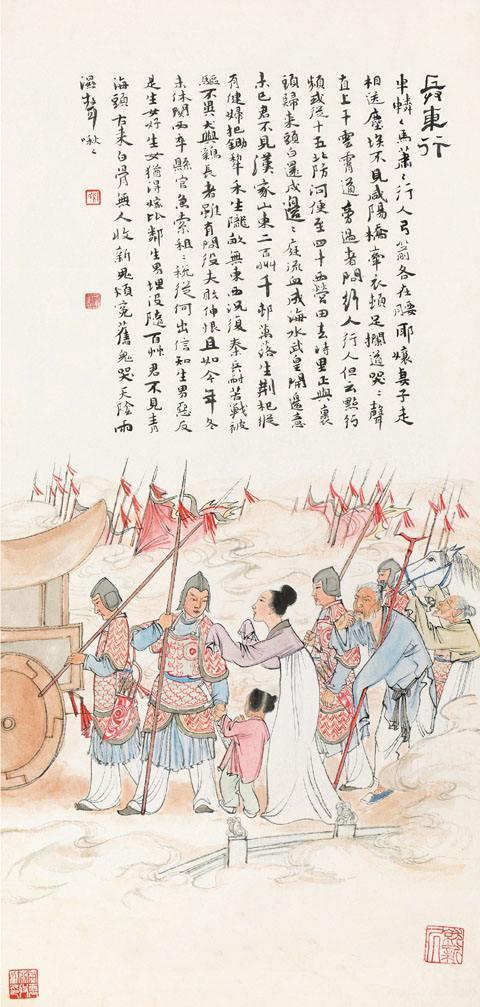 兵車行
車轔〻馬蕭〻行人弓箭各在腰耶孃妻子走
相送塵埃不見咸陽橋牽衣頓足攔道哭〻聲
直上干雲霄道旁過者問行人行人但云點行
頻或從十五北防河便至四十西營田去時里正與裹
頭歸來頭白還戍邊〻庭流血成海水武皇開邊意
未已君不見漢家山東二百州千邨萬落生荆杞縱
有健婦把鋤犂禾生隴畝無東西況復秦兵耐苦戰被
驅不異犬與雞長者雖有問役夫敢伸恨且如今年冬
未休關西卒縣官急索租〻稅從何出信知生男惡反
是生女好生女猶得嫁比鄰生男埋沒隨百艸君不見青
海頭古來白骨無人收新鬼煩冤舊鬼哭天陰雨
濕聲啾〻